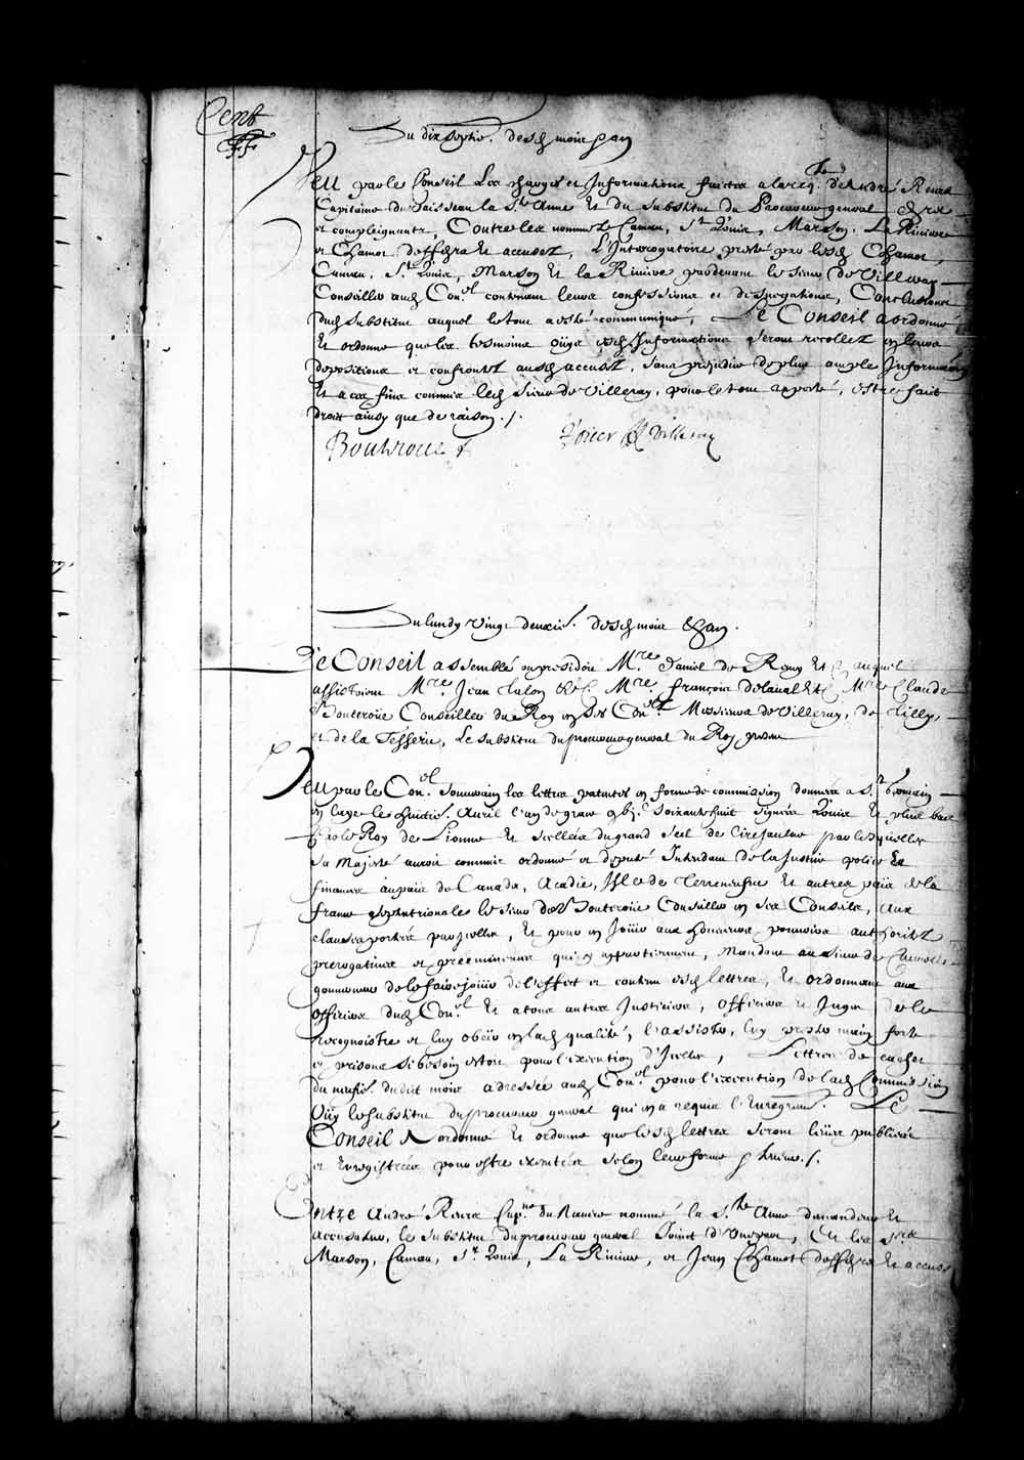 Cent
Du dix septie. desd mois & an
Veu par le Conseil Les charges et Informations faictes a la req.te d'André Reura
Capitaine du Vaisseau la S.te Anne Et du substitut du Procureur general
et complaignants, Contre les nommez Camau, S.t Louis, Marson, La Riviere
et Chamot deffendrs Et accusez, L'Interrogatoire presté par lesd Chamot,
Camau, S.t Louis, Marson Et la Riviere pardevant le sieur de Villeray
Conseiller aud Con.el contenant leurs confessions et denegations, Conclusions
dud substitut auquel le tout a esté communiqué, Le Conseil a ordonné
Et ordonne que les tesmoins ouys esd Informations seront recollez en leurs
depositions et confrontez ausd accusez, sans prejudice de plus ample Information
Et a ces fins commis led sieur de Villeray, pour le tout raporté, estre fait
droit ainsy que de raison ./.
Boutroue
Roüer de Villeray
Du lundy Vingt deuxie. desd mois & an.
Le Conseil assemblé ou presidoit M.re Daniel de Remy Et auquel
assistoient M.re Jean Talon M.re françois de laval M.re Claude
Bouteroüe Conseiller du Roy en ses Con.els Messieurs de Villeray, de Tilly,
et de la Tesserie, Le substitut du procureur general du Roy present
Veu par le Con.el Souverain les lettres patentes en forme de commission données a S.t Germain
en laye le huictie. Avril l'an de grace gbj.c soixante huit signées Louis Et plus bas
par le Roy de Lionne Et scellées du grand seel de cire jaulne par lesquelles
sa Majesté auroit commis ordonné et deputé Intendant de la Justice police Et
finances au païs de Canada, Acadie, Isle de Terreneufve Et autres païs de la
france septentrionale le sieur de Bouteroüe Conseiller en ses Conseils, aux
clauses portées par icelles, Et pour en Joüir aux honneurs, pouvoirs authoritez
prerogatives et preeminences qui y appartiennent, Mandant au sieur de Courcelle
gouverneur de le faire joüir de l'effect et contenu esd lettres, Et ordonnant aux
officiers dud Con.el Et a tous autres Justiciers, officiers et Juges de le
recognoistre et luy obeir en lad qualité, l'assister, luy prester main forte
et prisons si besoin estoit pour l'execution d'Icelles, Lettre de cachet
du neufie. dudit mois adressée aud Con.el pour l'execution de lad Commission
Oüy le substitut du procureur general qui en a requis l'Enregistremt. Le
Conseil A ordonné Et ordonne que lesd lettres seront leües publiées
et Enregistrées pour estre executées selon leur forme & teneur ./.
Entre André Reura Cap.ne du Navire nommé la S.te Anne demandeur Et
accusateur, le substitut du procureur general Joinct d'Unepart, Et les srs
Marson, Camau, S.t Louis, La Riviere, et Jean Chamot deffendrs Et accusez